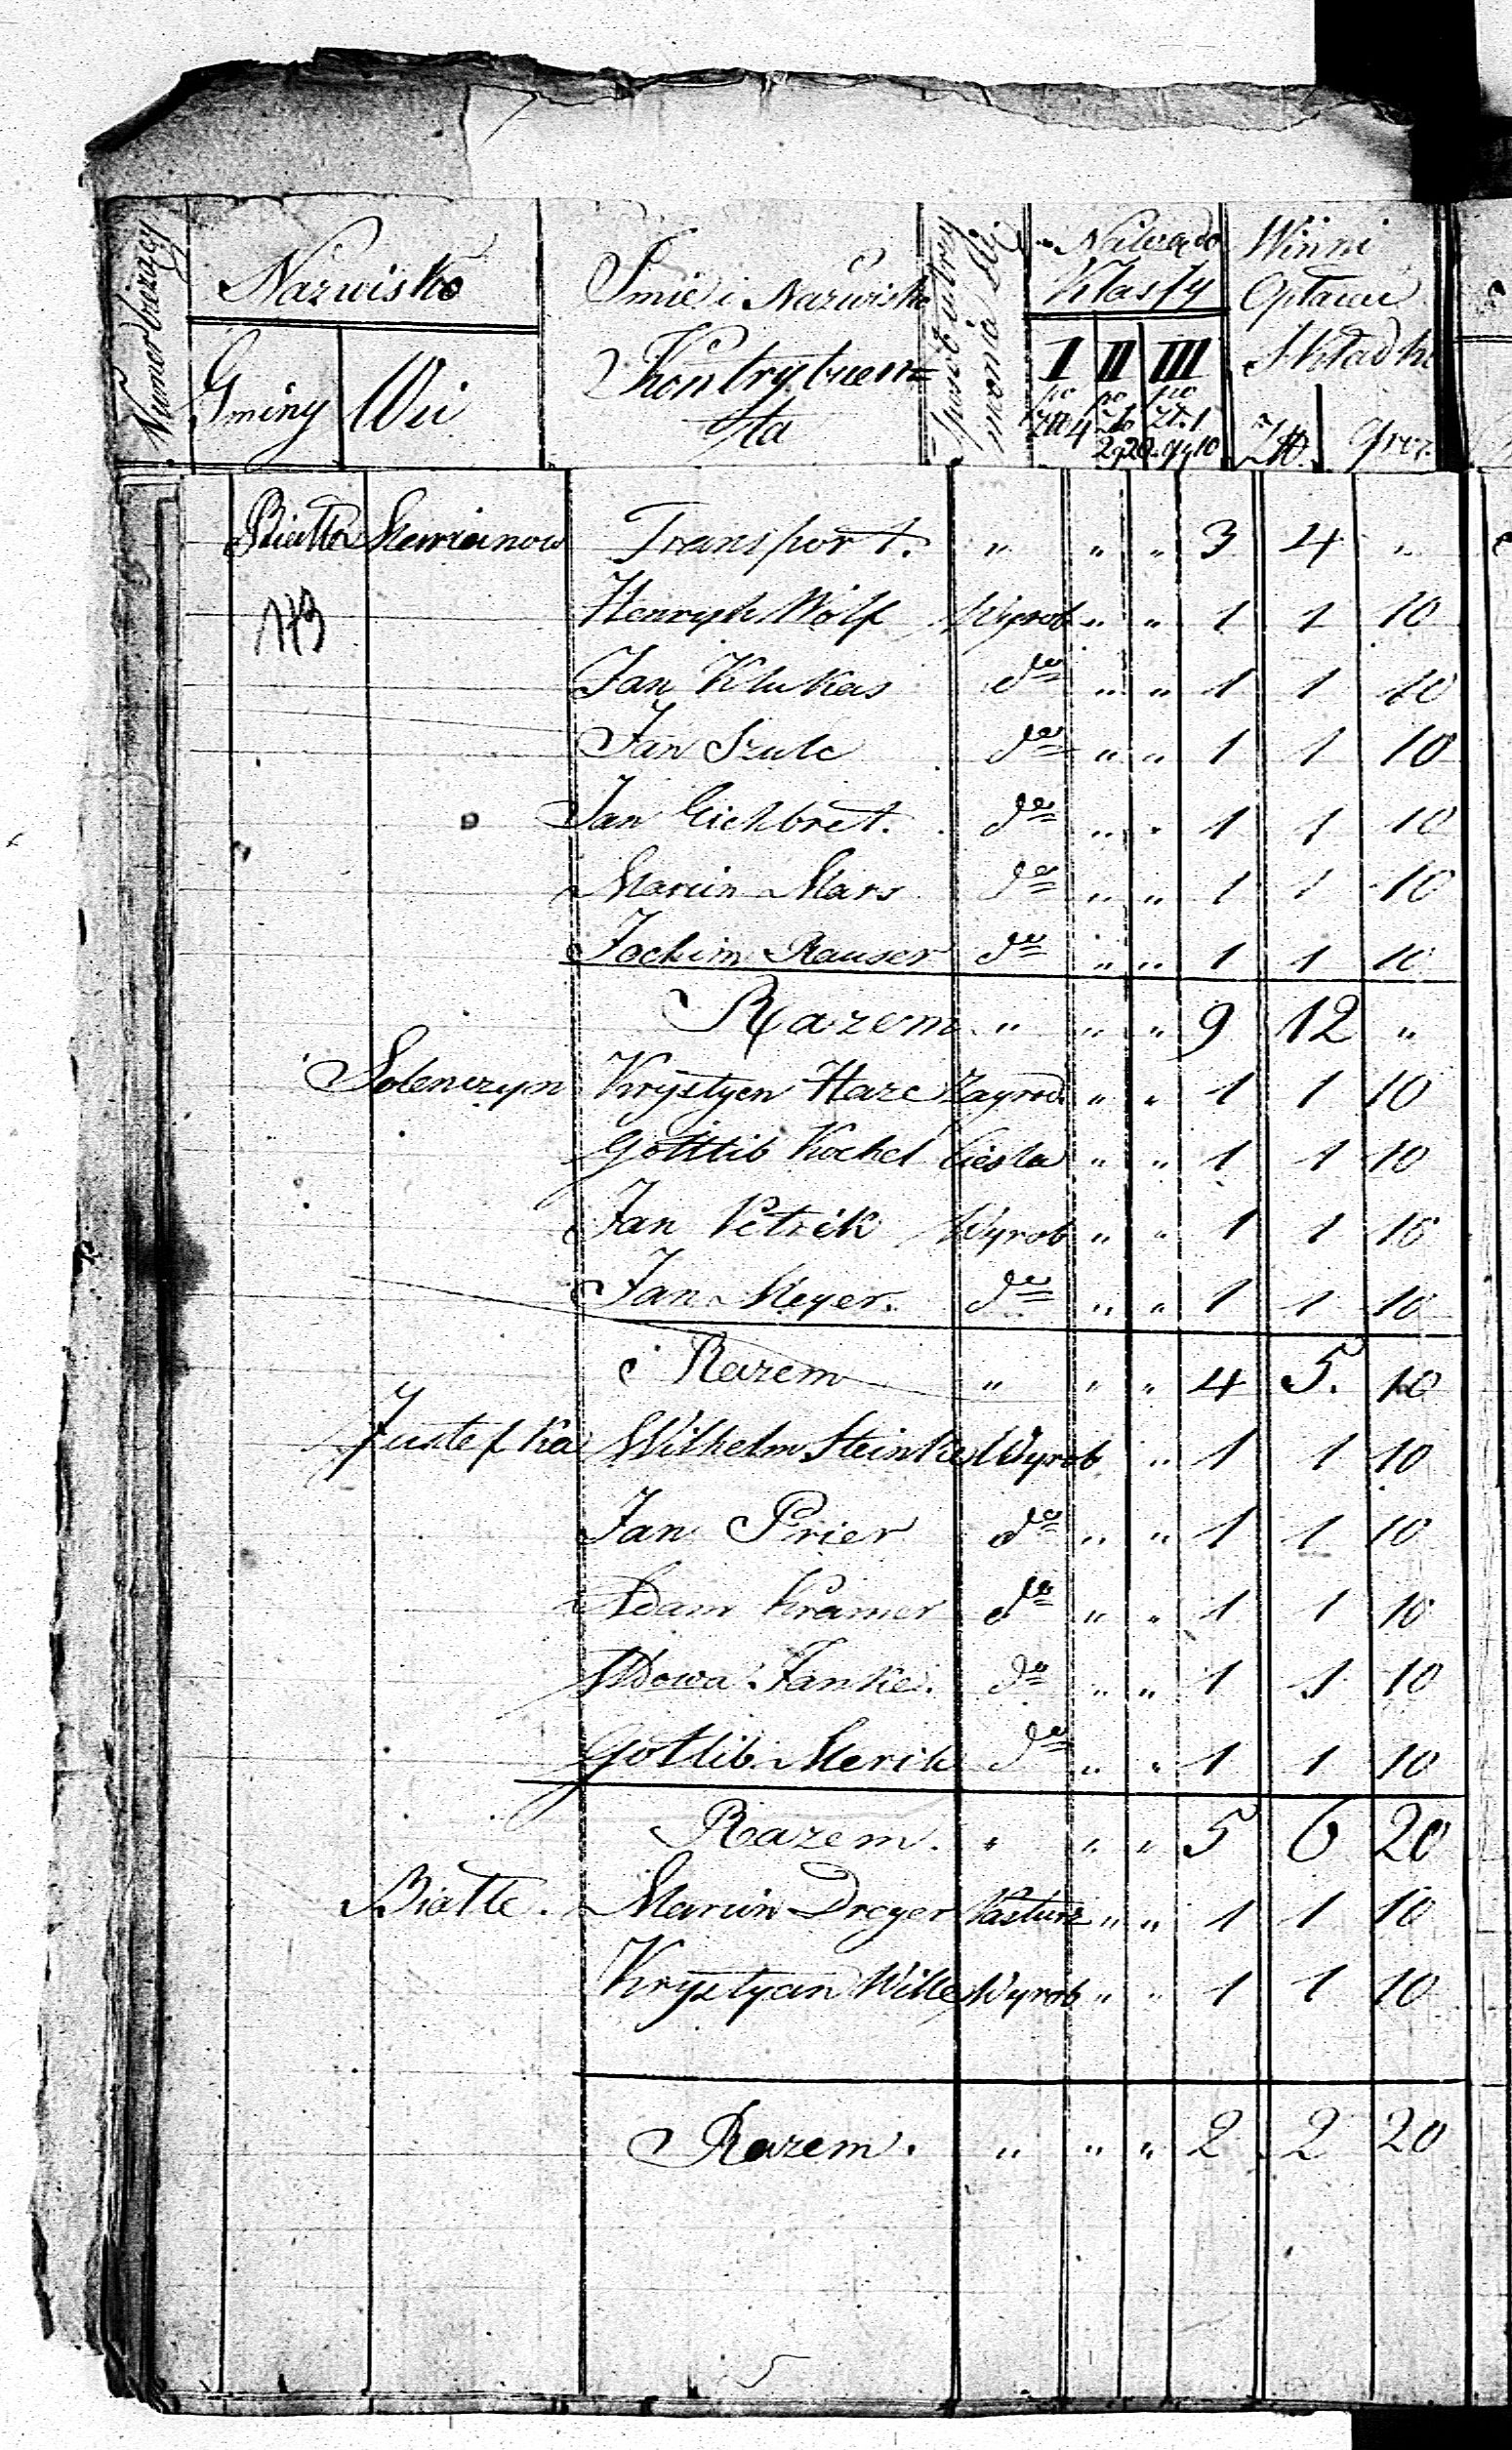 Numer bieżący
Nazwisko
Gminy Wsi
Imie i Nazwisko
Kontrybuen=
ta
Sposób utrzy
mania się
Należą do
Klassy
I II III
po po po
Zł 4 Zł. 1
2 g 20 gr 10
Winni
Opłacać
Składki
Zł. Grosz.
Biatta Transport. " " " 3 4 "
113 Henryk Wolf Wyrob " " 1 1 10
Jan Klukas do " " 1 1 10
Jan Szulc do " " 1 1 10
Jan Eichbret. do " " 1 1 10
Marcin Mars do " " 1 1 10
Jochim Rauser do " " 1 1 10
Razem " " " 9 12 "
Krystyen Haze Zagrod. " " 1 1 10
Gottlib Kockel Ciesla " " 1 1 10
Jan Petrik Wyrob " " 1 1 10
Jan Meyer. do " " 1 1 10
Razem " " " 4 5. 10
Justefka Wilhelm Steinke Wyrob " 1 1 10
Jan Prier do " " 1 1 10
Adam Kramer do " " 1 1 10
Wdowa Janke. do " " 1 1 10
Gotlib Merik do " " 1 1 10
Razem. " " " 5 6 20
Biatte. Marcin Dreyer Pasturz " " 1 1 10
Krystyan Wille Wyrob " " 1 1 10
Razem. " " " 2 2 20